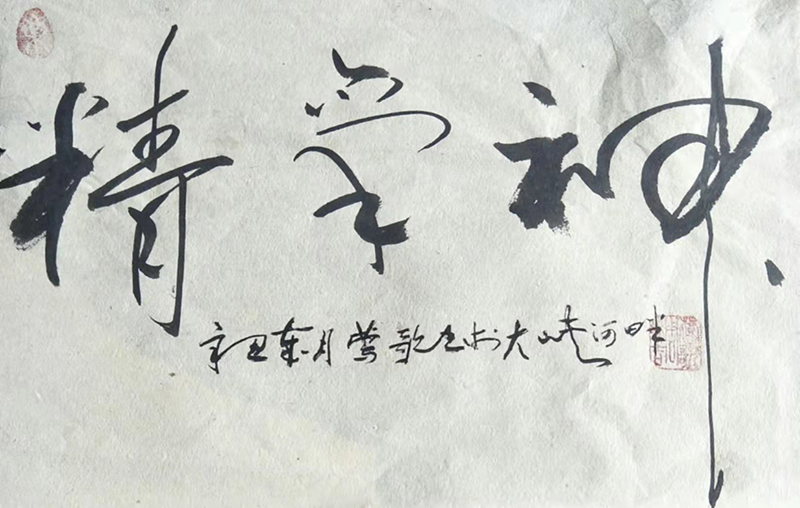 精学神
辛丑東月莺歌书於大峡河畔